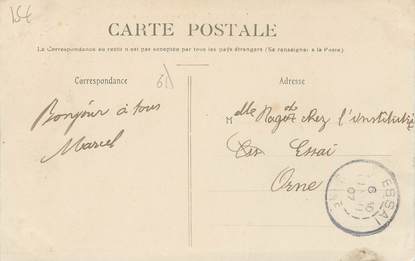 15€
CARTE POSTALE
La Correspondance au recto n'est pas acceptée par tous les pays étrangers (Se renseigner à la Poste).
Correspondance
Adresse
61
Bonjour à tous
Marcel
Mlle Ragot chez l'institutrice
Essai
Orne
ESSAI
ORNE